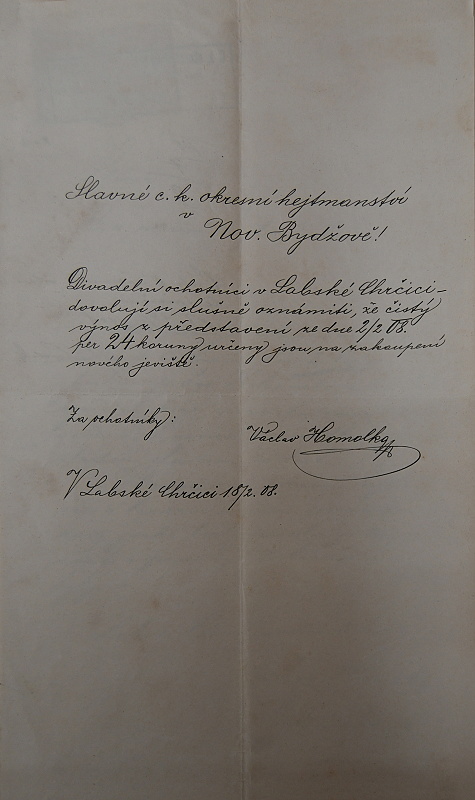 Slavné c. k. okresní hejtmanství
v
Nov. Bydžově!
Divadelní ochotníci v Labské Chrčici-
dovolují si slušně oznámiti, že čistý
výnos z představení ze dne 2/2 08.
per 24 koruny určeny jsou na zakoupení
nového jeviště.
Za ochotníky:
Václav Homolka
V Labské Chrčici 18/2. 08.